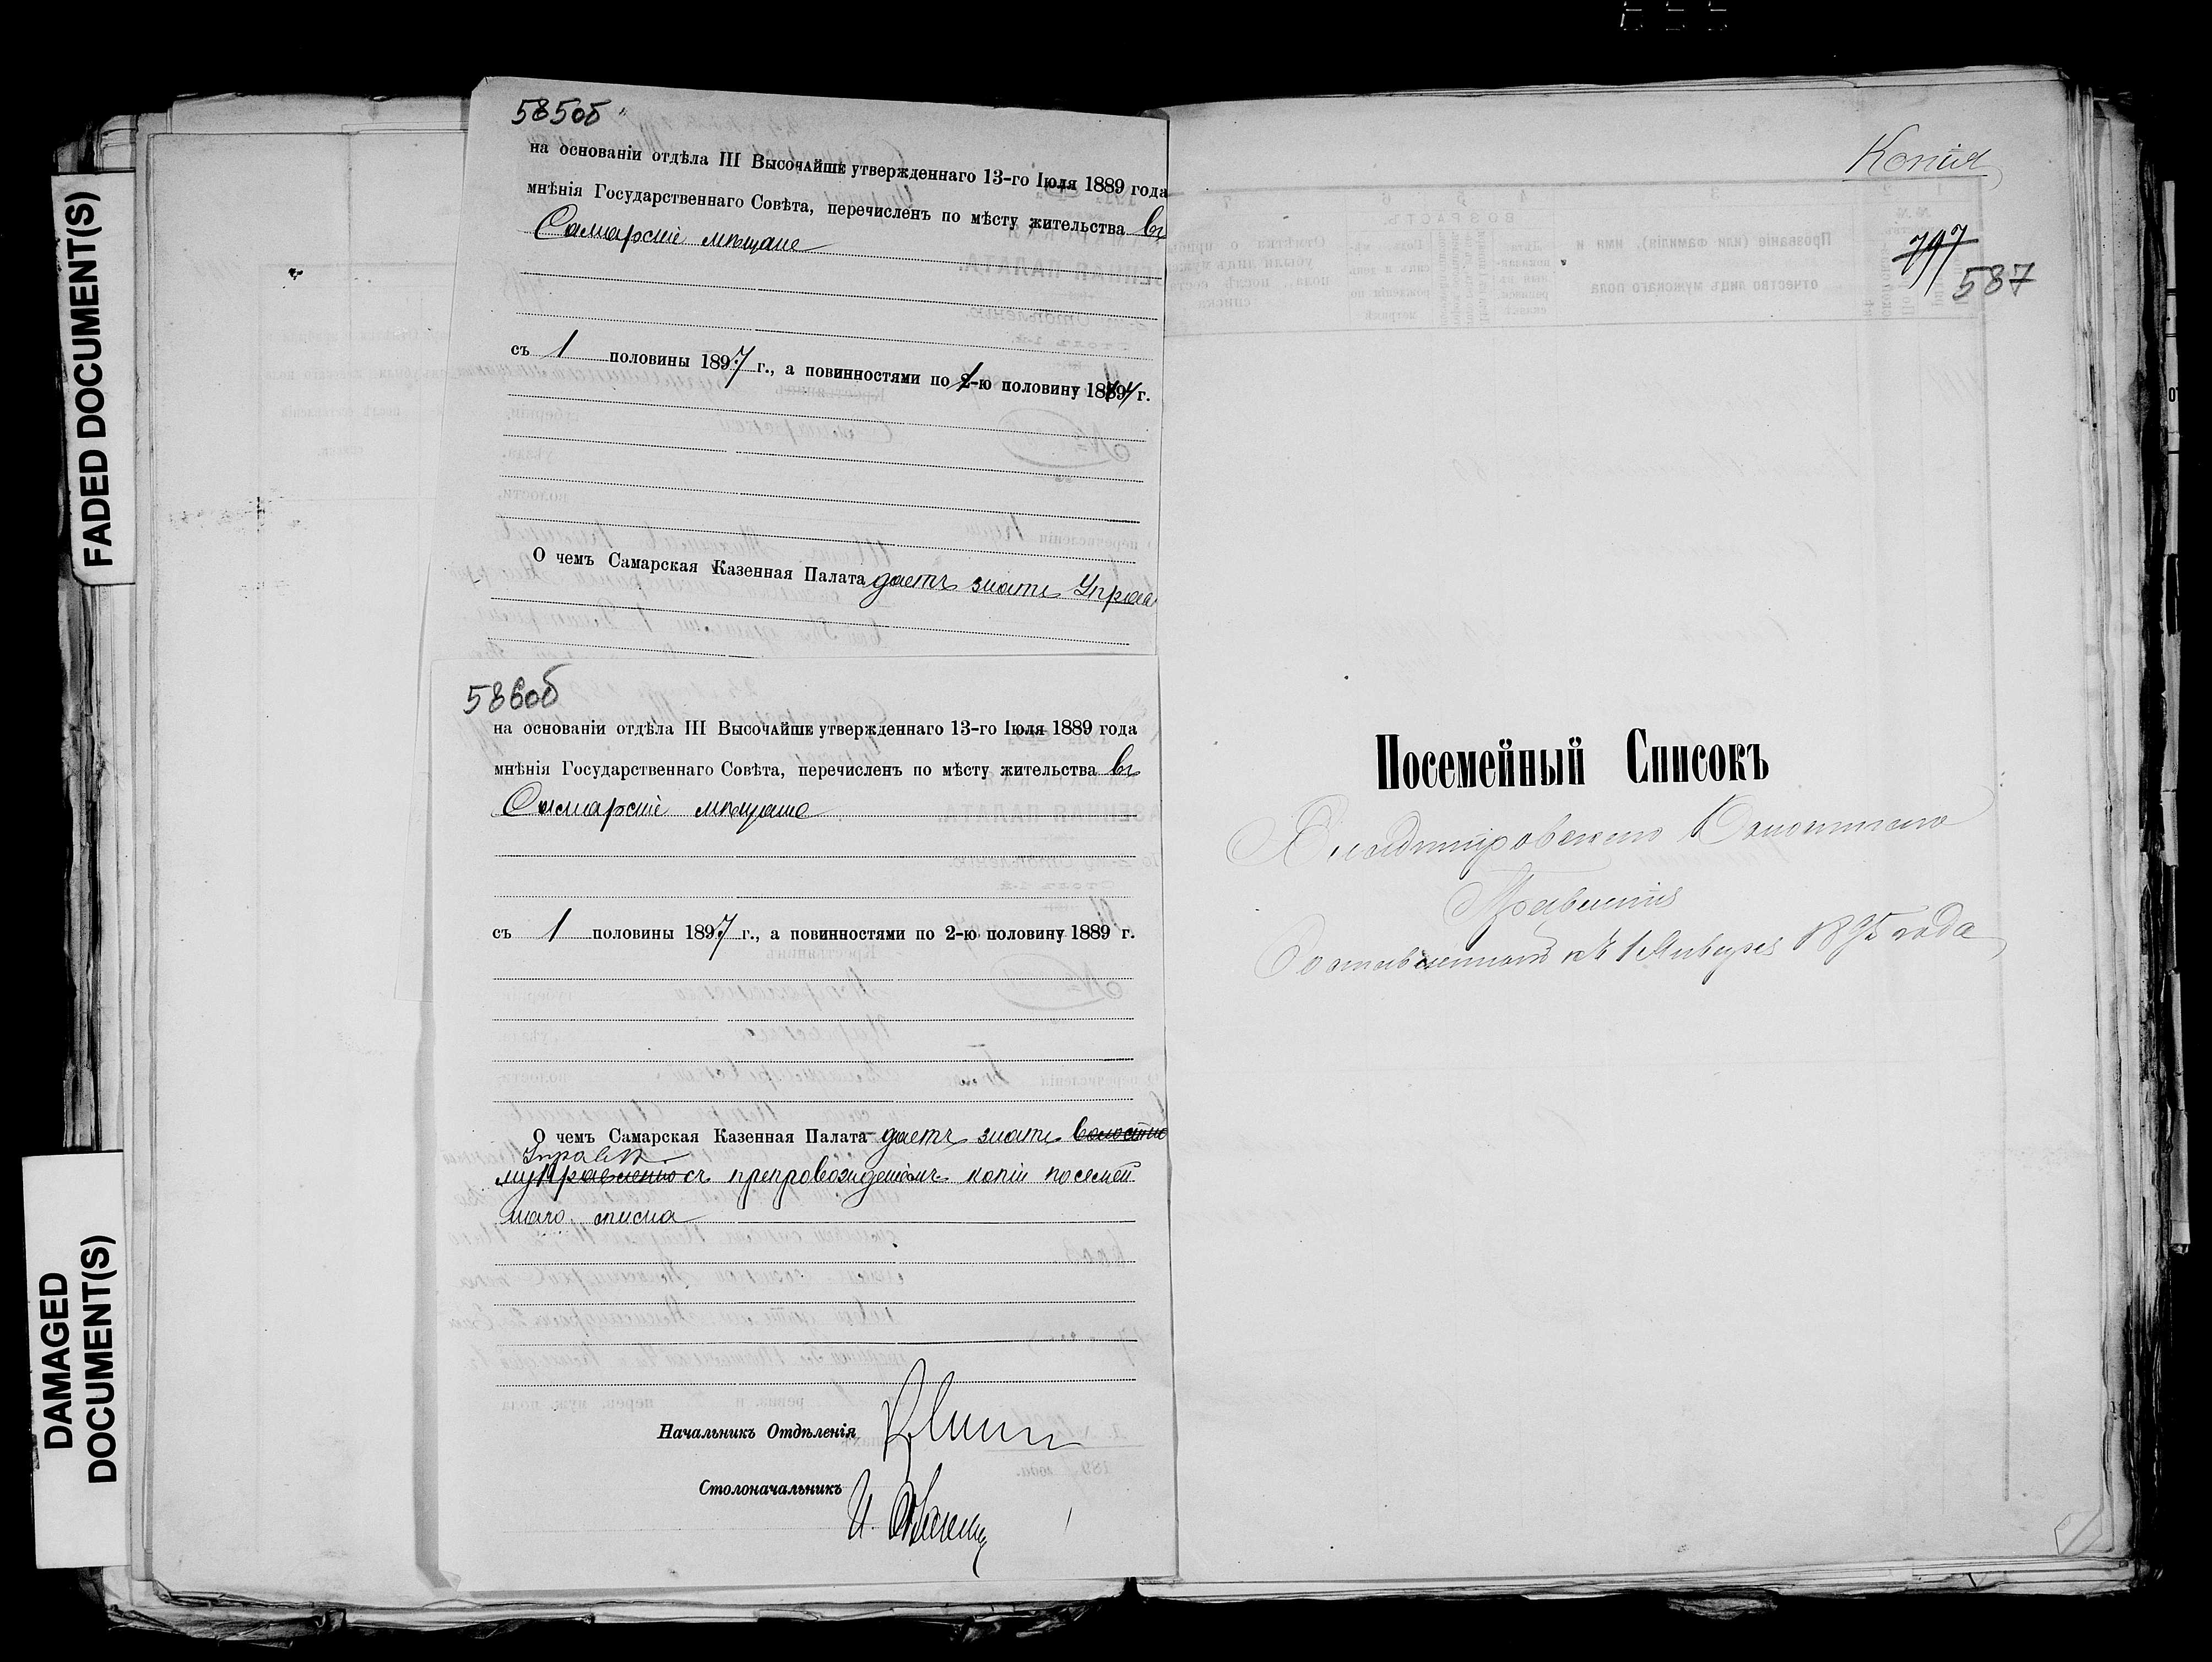 FADED DOCUMENT(S)
DAMAGED
DOCUMENT(S)
585об
на основаніи отдѣла III Высочайше утвержденнаго 13-го Іюля 1889 года
мнѣнія Государственнаго Совѣта, перечисленъ по мѣсту жительства въ
Самарскіе мѣщане
съ 1 половины 1897 г., а повинностями по -ю половину г.
О чемъ Самарская Казенная Палата даетъ знать Управа
586об
на основаніи отдѣла III Высочайше утвержденнаго 13-го Іюля 1889 года
мнѣнія Государственнаго Совѣта, перечисленъ по мѣсту жительства въ
Самарскіе мѣщане
съ 1 половины 1897 г., а повинностями по 2-ю половину 1889 г.
О чемъ Самарская Казенная Палата даетъ знать волостно
Управѣ
му Правленію съ препровожденіемъ копіи посемей
наго списка
Начальникъ Отдѣленія
Столоначальникъ И.
Копія
797
587
Посемейный Списокъ
Волостного
Правленія
Составленный къ 1 Января 1895 года